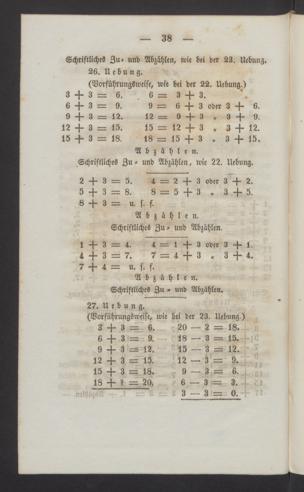 — 38 —
Schriftliches Zu- und Abzählen, wie bei der 23. Uebung.
26. Uebung.
(Vorführungsweise, wie bei der 22. Uebung.)
3 + 3 = 6. 6 = 3 + 3.
6 + 3 = 9. 9 = 6 + 3 oder 3 + 6.
9 + 3 = 12. 12 = 9 + 3 „ 3 + 9.
12 + 3 = 15. 15 = 12 + 3 „ 3 + 12.
15 + 3 = 18. 18 = 15 + 3 „ 3 + 15.
Abzählen.
Schriftliches Zu- und Abzählen, wie 22. Uebung.
2 + 3 = 5. 4 = 2 + 3 oder 3 + 2.
5 + 3 = 8. 8 = 5 + 3 „ 3 + 5.
8 + 3 = u. s. f.
Abzählen.
Schriftliches Zu- und Abzählen.
1 + 3 = 4. 4 = 1 + 3 oder 3 + 1.
4 + 3 = 7. 7 = 4 + 3 „ 3 + 4.
7 + 4 = u. s. f.
Abzählen.
Schriftliches Zu- und Abzählen.
27. Uebung.
(Vorführungsweise, wie bei der 23. Uebung.)
3 + 3 = 6. 20 — 2 = 18.
6 + 3 = 9. 18 — 3 = 15.
9 + 3 = 12. 15 — 3 = 12.
12 + 3 = 15. 12 — 3 = 9.
15 + 3 = 18. 9 — 3 = 6.
18 + = 20. 6 — 3 = 3.
3 — 3 = 0.